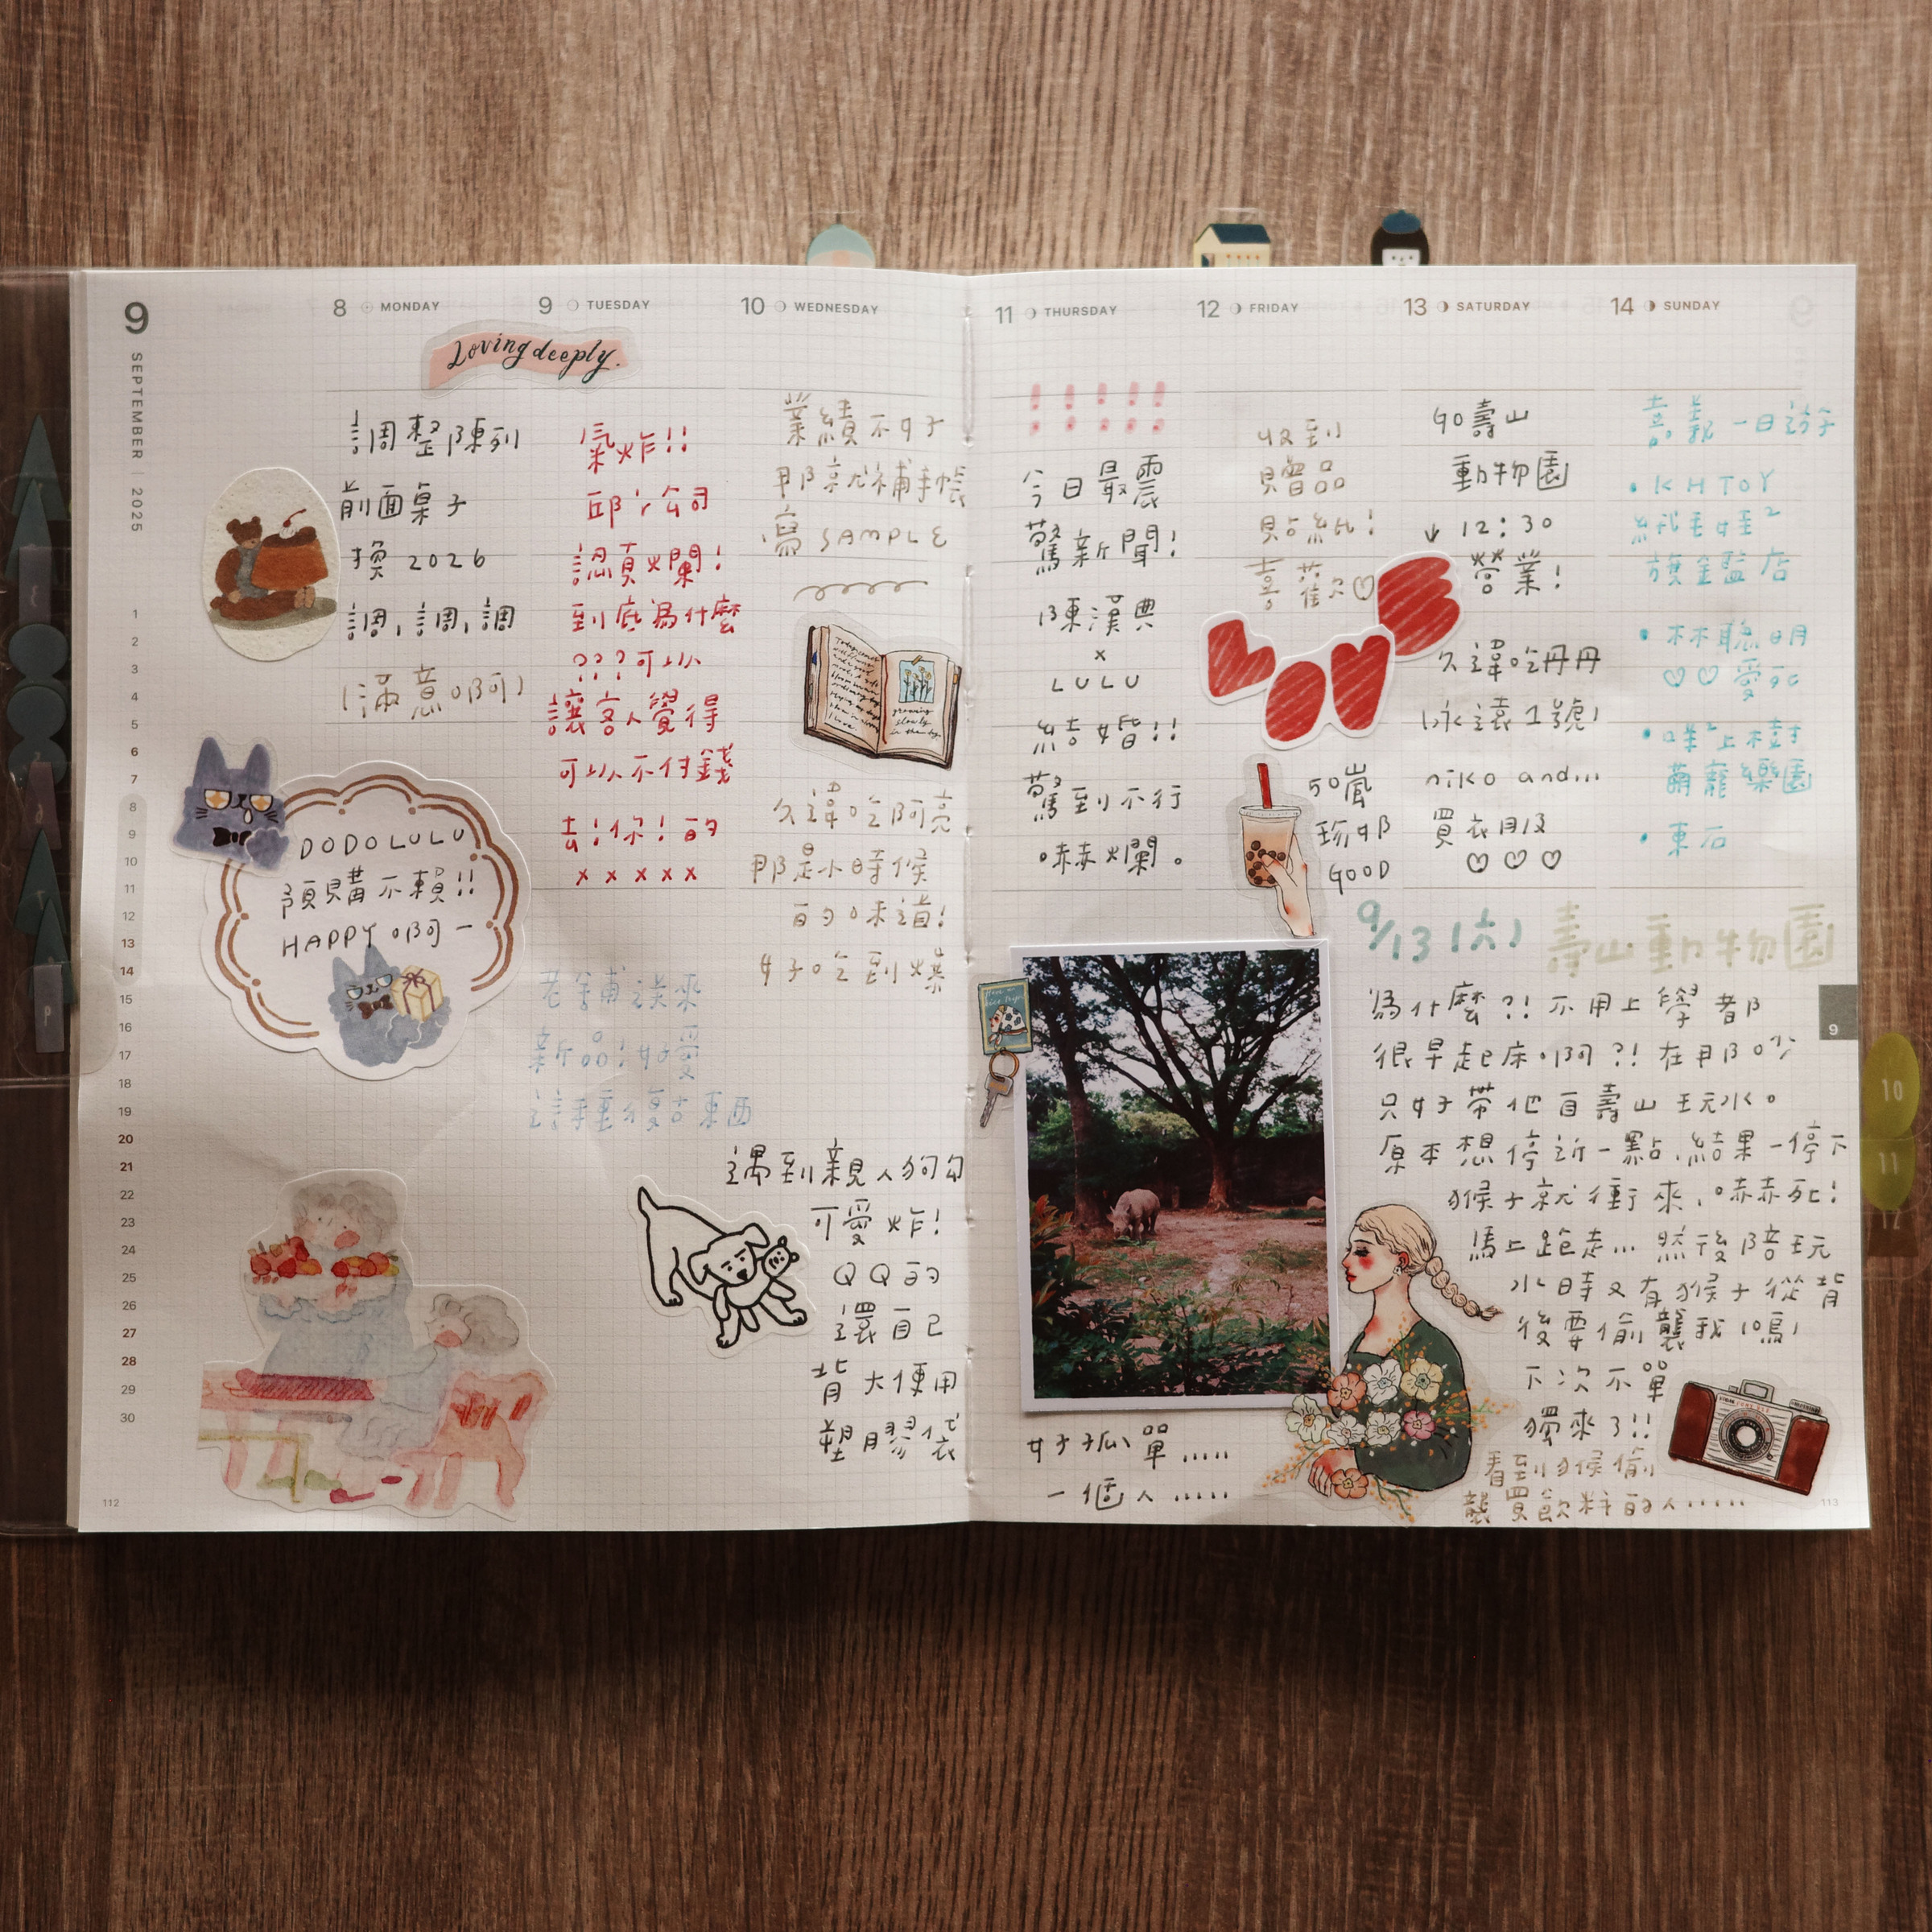 9
SEPTEMBER | 2025
8 MONDAY
9 TUESDAY
10 WEDNESDAY
11 THURSDAY
12 FRIDAY
13 SATURDAY
14 SUNDAY
Loving deeply.
調整陳列
前面桌子
換 2026
調,調,調
(滿意啊)
DODOLULU
預購不賴!!
HAPPY 啊一
氣炸!!
邱ㄚ公司
認真爛!
到底為什麼
???可以
讓客人覺得
可以不付錢
去!你!的
×××××
老爺補送來
新品!好愛
這種復古東西
業績不好
那就補手帳
寫 SAMPLE
久違吃阿亮
那是小時候
的味道!
好吃到爆
遇到親人狗勾
可愛炸!
QQ的
還自己
背大便用
塑膠袋
!!!!!
今日最震
驚新聞!
陳漢典
×
LULU
結婚!!
驚到不行
嚇爛。
收到
贈品
貼紙!
喜歡♡
LOVE
50嵐
珍椰
GOOD
GO壽山
動物園
↓ 12:30
營業!
久違吃丹丹
(永遠1號)
niko and...
買衣服
♡♡♡
嘉義一日遊
• KH TOY
絨毛娃²
旗艦店
• 林聰明
♡♡愛死
• 咩²上樹
萌寵樂園
• 東石
9/13(六) 壽山動物園
為什麼?!不用上學都
很早起床啊?!在那吵
只好帶他自壽山玩水。
原本想停近一點,結果一停下
猴子就衝來,嚇死!
馬上跑走...然後陪玩
水時又有猴子從背
後要偷襲我(嗚)
下次不單
獨來了!!
看到猴偷
襲買飲料的人......
好孤單.....
一個人.....
1
2
3
4
5
6
7
8
9
10
11
12
13
14
15
16
17
18
19
20
21
22
23
24
25
26
27
28
29
30
112
9
10
11
12
113